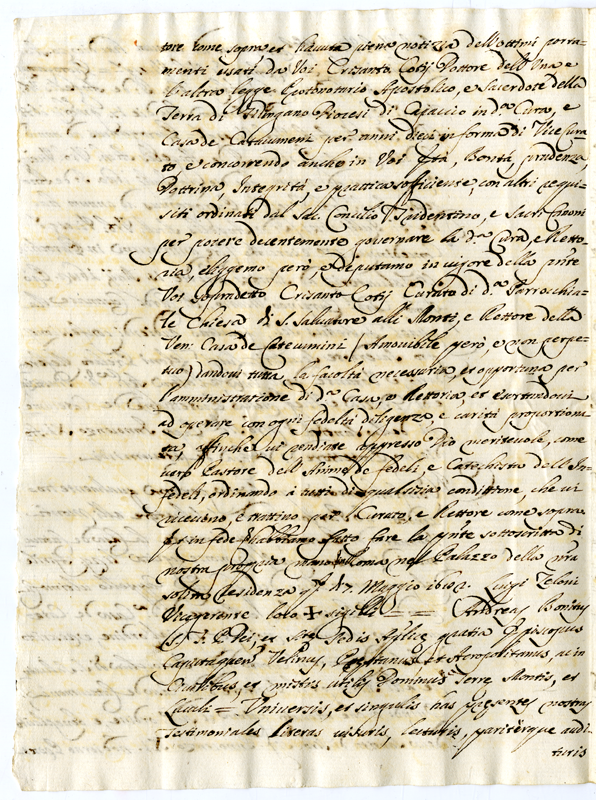 tore come sopra et havuta piena notizia dell'ottimi porta=
menti usati da Voi Crisanto Cotij Dottore dell'Una e
l'altra legge Protonotario Apostolico, e Sacerdote della
Terra di Diocesi di Cajaccio in d.ª Cura, e
Casa de Catecumeni per anni dieci in forma di Vice Cura=
to, e concorrendo anche in Voi Età, Bontà, prudenza,
Dottrina, Integrità, e prattica sofficiente, con altri requi=
siti ordinati dal Sac. Concilio Tridentino, e Sacri Canoni
per potere decentemente governare la d.ª Cura, e Retto=
ria, elleggemo però, e deputamo in vigore della pñte
Voi sopradetto Crisanto Cotij Curato di d.ª Parrocchia=
le Chiesa di S. Salvatore alli Monti, e Rettore della
Ven: Casa de Catecumini (Amovibile però, e non perpe=
tuo) dandovi tutta la facoltà necessaria, et opportuna per
l'amministratione di d.ª Casa, o Rettoria, et esortandovi
ad operare con ogni fedeltà diligenza, e carità proportiona=
ta, affinche vi rendiate appresso Dio meritevole, come
vero Pastore dell'Anime de fedeli, e Catechista dell'In=
fedeli, ordinando à tutti di qualsizia conditione, che vi
ricevono, e trattino per Curato, et Rettore come sopra
et in fede habbiamo fatto fare la pñte sottoscritta di
nostra propria mano Roma nel Palazzo della nra
solita residenza q.º dì 17 Maggio Luigi
Vicegerente loco + sigilli = = Andreas
Dei, et Sedis Aplicę gratia Episcopus
Caputaquen. Velinus, Pestanus et Acropolitanus, ac in
utilis Dominus Terre Montis, et
= Universis, et singulis has presentes nostras
Testimoniales literas visuris, lecturis, pariterque audi=
turis